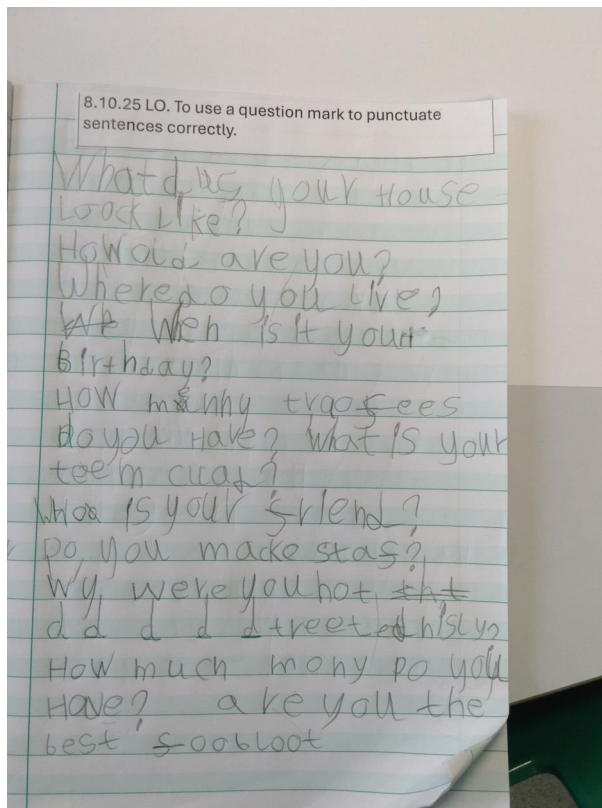 8.10.25 LO. To use a question mark to punctuate
sentences correctly.
What dus your House
Loock Like?
How old are you?
Where do you Live?
When is it your
Birthday?
How manny trqofees
do you Have? What is your
teem cuad?
whoa is your friend?
Do you macke staf?
Wy were you not tht
d d d d d treeted nisly?
How much mony Do you
Have? are you the
best foobloot